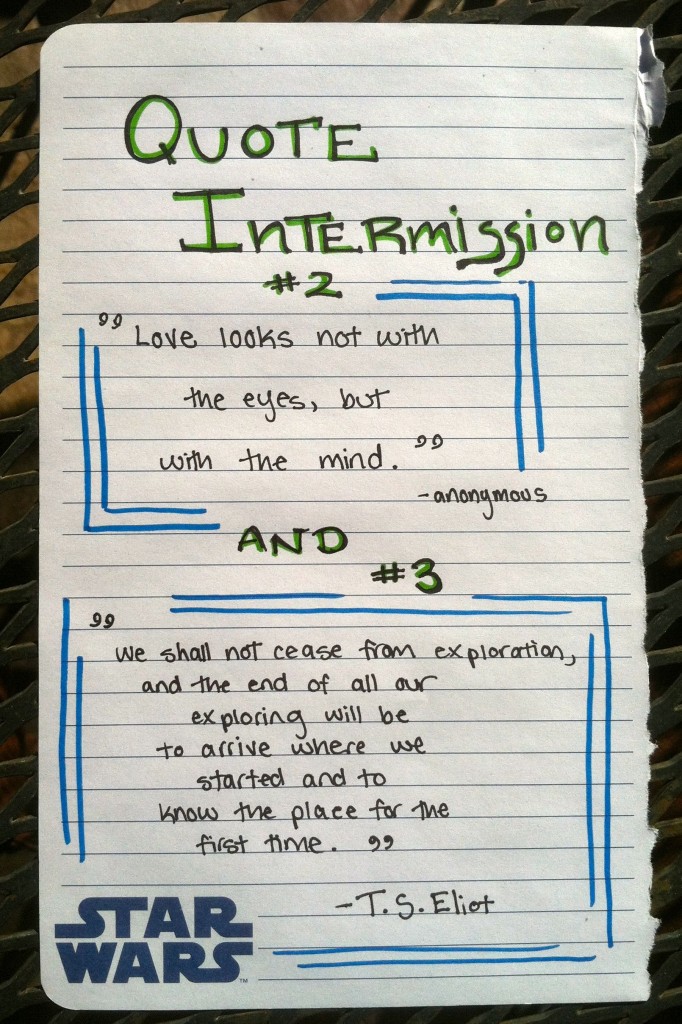 QUOTE
INTERMISSION
#2
"Love looks not with
the eyes, but
with the mind."
-anonymous
AND
#3
"
we shall not cease from exploration,
and the end of all our
exploring will be
to arrive where we
started and to
know the place for the
first time. "
-T.S. Eliot
STAR
WARS™